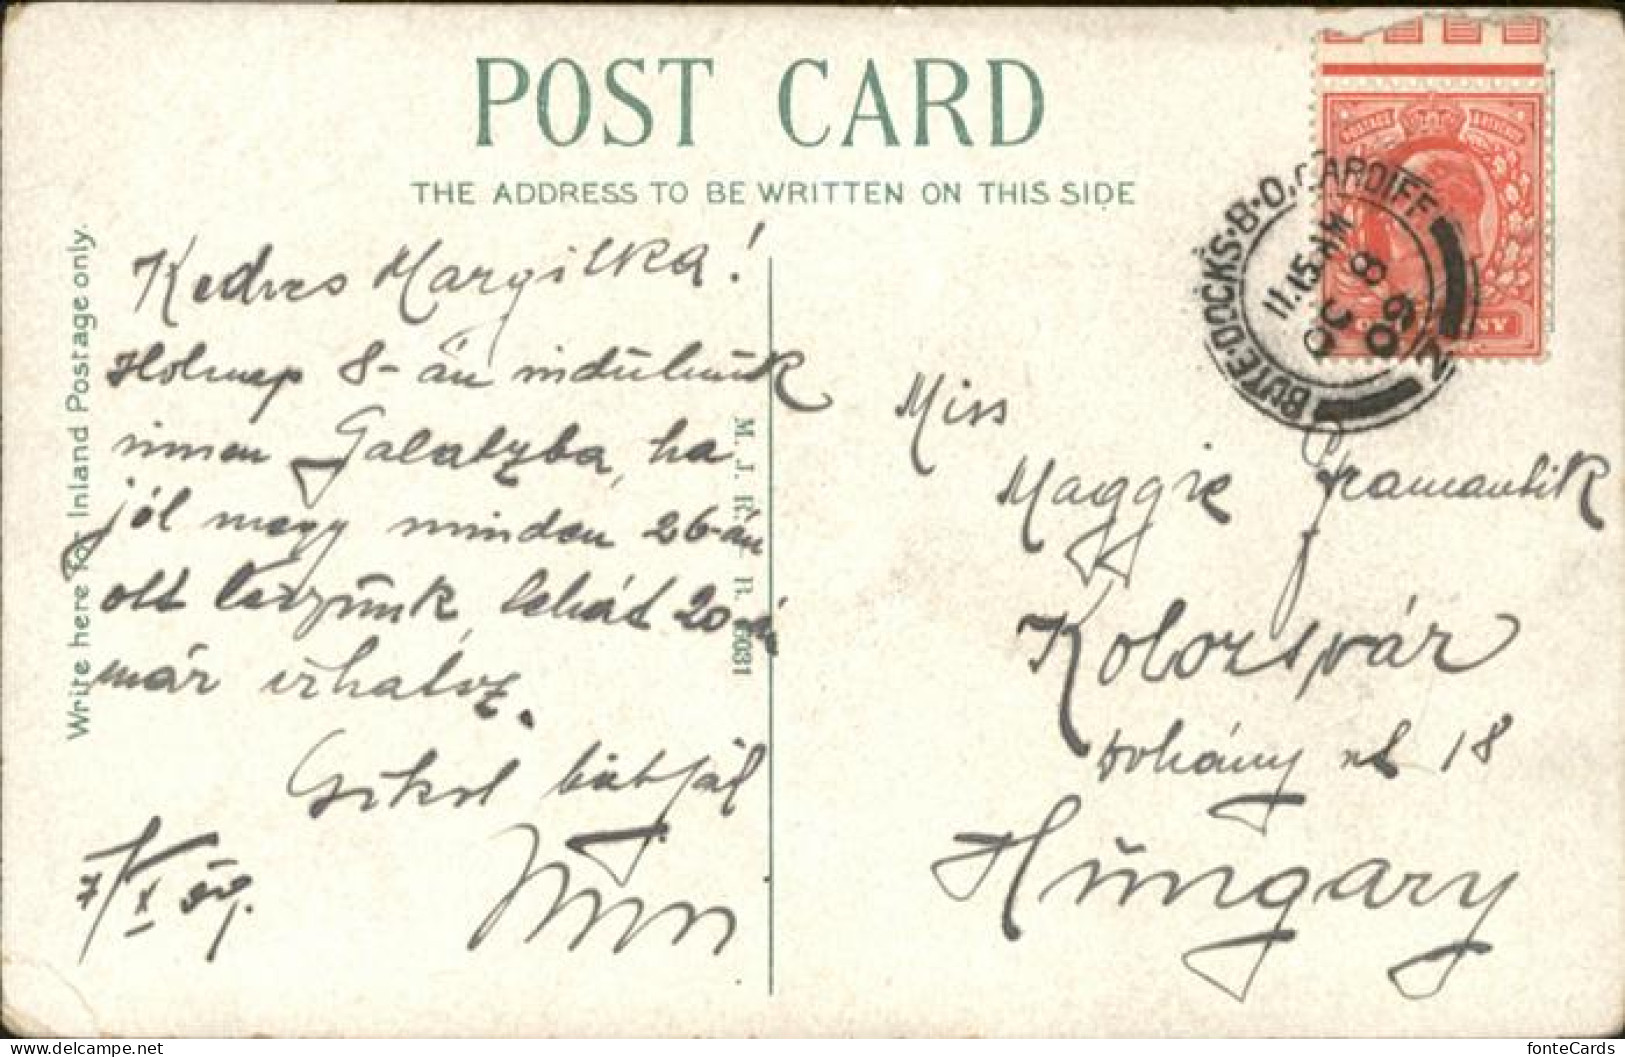 POST CARD
THE ADDRESS TO BE WRITTEN ON THIS SIDE
Write here for Inland Postage only.
M. J. R. B.
6031
BUTE·DOCKS·B·O. CARDIFF
11.15 AM
OC 8
09
2
POSTAGE & REVENUE
Kedves Margitka!
Holnap 8-án indulunk
innen Galatzba, ha
jól megy minden 26-án
ott leszünk, tehát 20-án
már irhatsz.
Csókol bátyád
7/X 909.
Miss
Maggie
Kolozsvár
Dohány u 18
Hungary
fonteCards